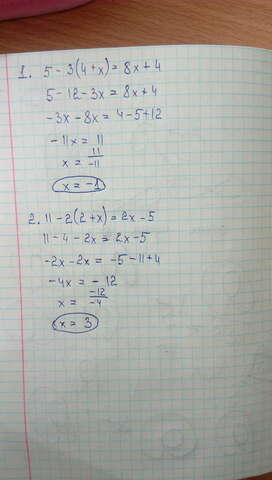 1. 5 - 3(4+x) = 8x + 4
5 - 12 - 3x = 8x + 4
-3x - 8x = 4 - 5 + 12
-11x = 11
x = 11/-11
x = -1
2. 11 - 2(2+x) = 2x - 5
11 - 4 - 2x = 2x - 5
-2x - 2x = -5 - 11 + 4
-4x = -12
x = -12/-4
x = 3